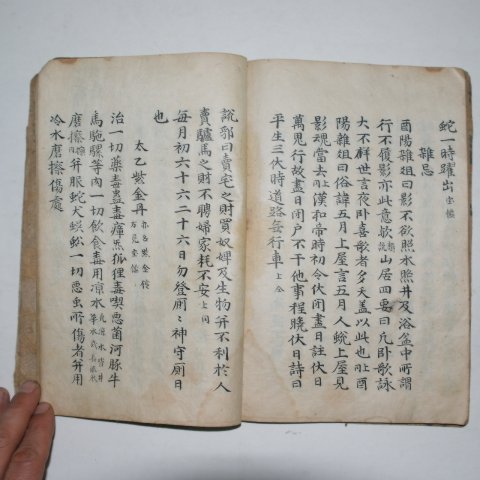 蛇一時躍出 寶鑑
雜忌
酉陽雜俎曰影不欲照水照井及浴盆中所謂
行不履影亦此意歟 類說 山居四要曰凡臥歌詠
大不祥世言夜臥喜歌者多夭蓋以此也 上同 酉
陽雜俎曰俗諱五月上屋言五月人蛻上屋見
影魂當去 上同 漢和帝時初令伏閉晝日註伏日
萬鬼行故晝日閉户不干他事程曉伏日詩曰
平生三伏時道路無行車 上仝
說郛曰賣宅之財買奴婢及生物并不利於人
賣驢馬之財不聘婦家耗不安 上同
每月初六十六二十六日勿登厠厠神守厠日
也
太乙紫金丹 亦名紫金錠
治一切藥毒蠱毒瘴炁狐狸毒喫惡菌河豚牛
馬駞騾等肉一切飲食毒用凉水
磨擦 并服蛇犬蜈蚣一切惡虫所傷者并用
冷水磨搽傷處